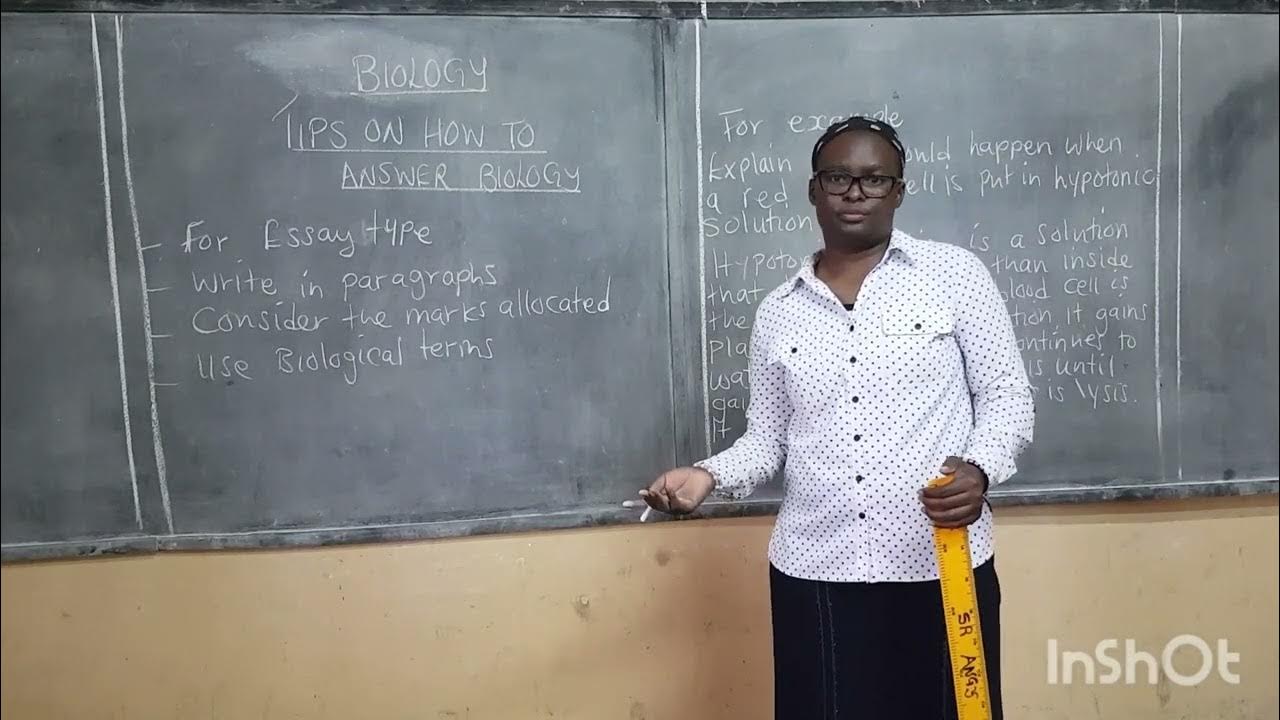 BIOLOGY
TIPS ON HOW TO
ANSWER BIOLOGY
- For Essay type
- Write in paragraphs
- Consider the marks allocated
- Use Biological terms
For example
Explain ould happen when
a red ell is put in hypotonic
solution
Hypoto is a solution
that than inside
the blood cell is
pla tion it gains
wa ontinues to
gai is until
It is lysis.
SR ANGS
InShOt